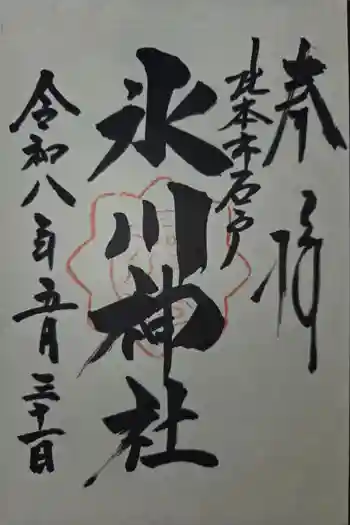 奉拝
北本市石戸
氷川神社
令和八年五月三十一日